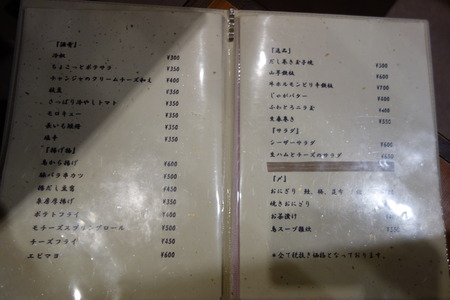 【酒肴】
冷奴 ¥300
ちょこっとポテサラ ¥350
チャンジャのクリームチーズ和え ¥400
枝豆 ¥350
さっぱり冷やしトマト ¥350
モロキュー ¥350
長いも ¥350
¥350
【揚げ物】
鳥から揚げ ¥600
豚バラ串カツ ¥500
揚だし豆腐 ¥450
厚揚げ ¥350
ポテトフライ ¥400
モチーズ ロール ¥500
チーズフライ ¥450
エビマヨ ¥600
【逸品】
だし巻き玉子焼 ¥500
山芋鉄板 ¥600
牛ホルモンピリ辛鉄板 ¥700
じゃがバター ¥400
ふわとろニラ玉 ¥400
生春巻き ¥550
【サラダ】
シーザーサラダ ¥600
生ハムとチーズのサラダ ¥650
【〆】
おにぎり 鮭、梅、
焼きおにぎり
お茶漬け
鳥スープ雑炊 ¥550
*全て税抜き価格となっております。